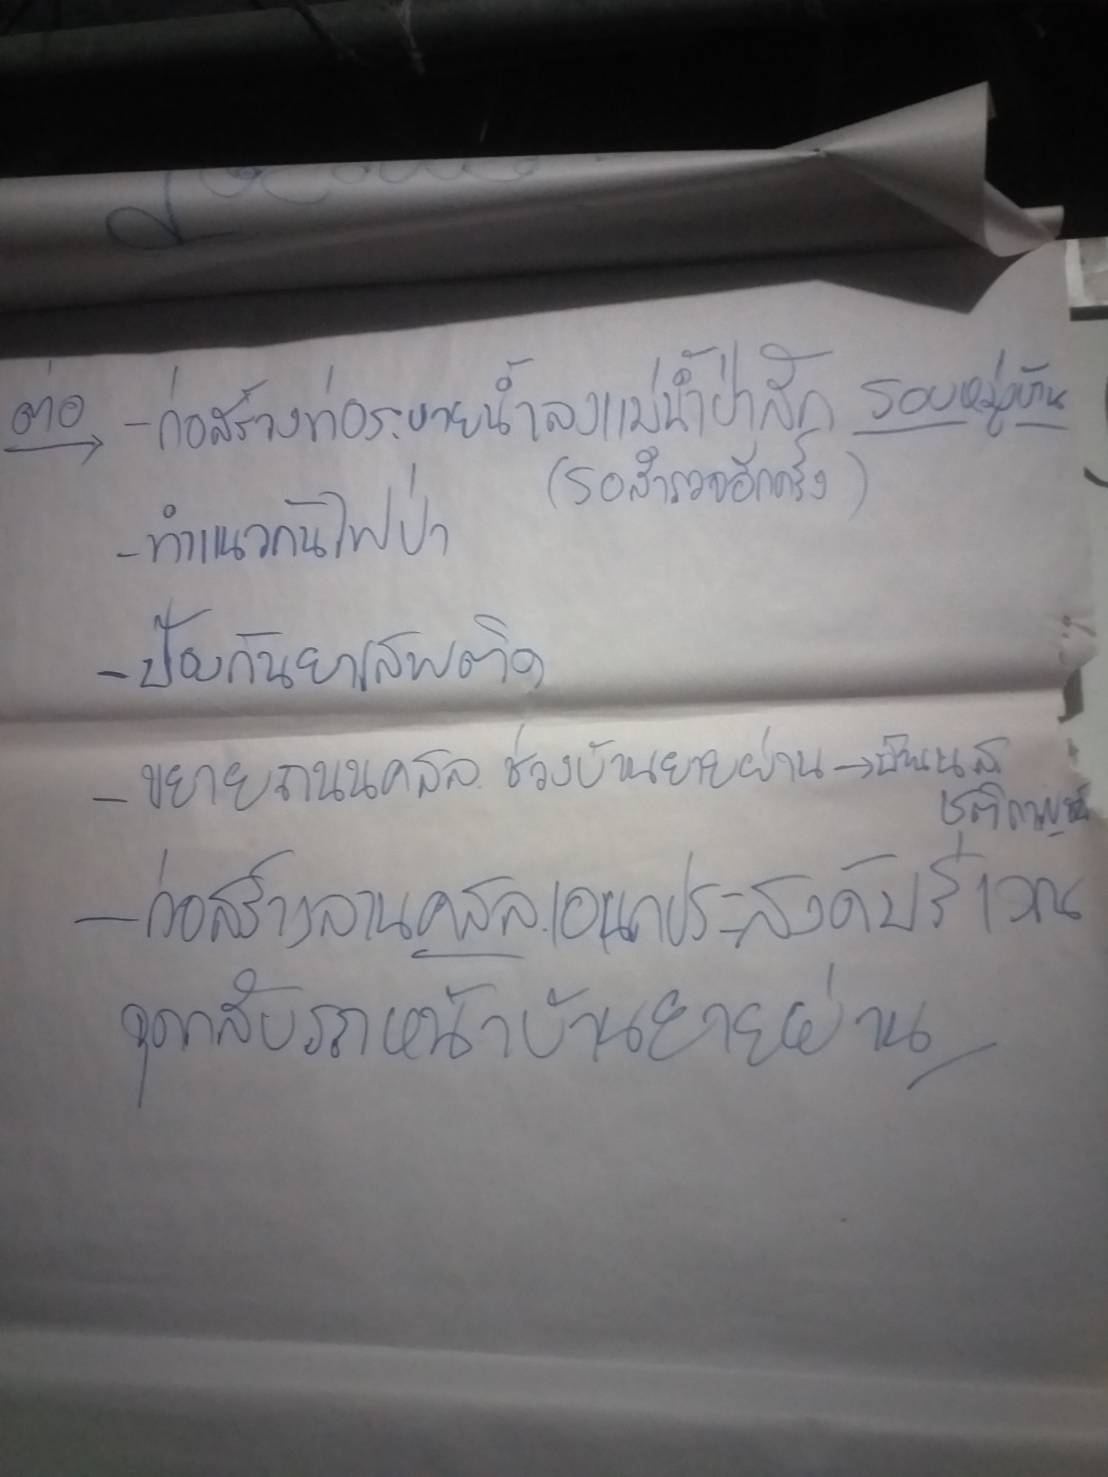 ต่อ - ก่อสร้างท่อระบายน้ำลงแม่น้ำป่าสัก รอบหมู่บ้าน
(รอสำรวจอีกครั้ง)
- ทำแนวกันไฟป่า
- ป้องกันยาเสพติด
- ขยายถนนคสล. ช่วงบ้านยายผ่าน →
- ก่อสร้างลานคสล.เอนกประสงค์บริเวณ
จุดกลับรถหน้าบ้านยายผ่าน